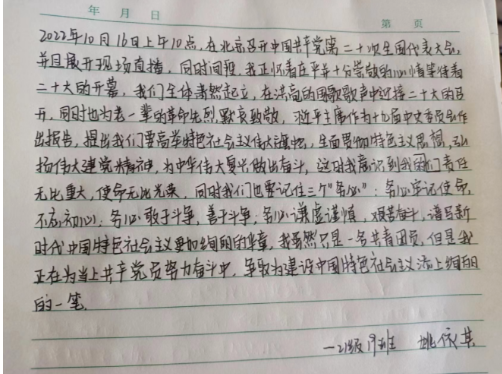 年 月 日 第 页
2022年10月16日上午10点,在北京召开中国共产党第二十次全国代表大会,
并且展开现场直播,同时间段,我正怀着在平并十分崇敬的心情等待着
二十大的开幕,我们全体肃然起立,在洪亮的国歌歌声中迎接二十大的召
开,同时也为老一辈的革命先烈默哀致敬,习近平主席作为十九届中央委员会作
出报告,提出我们要高举特色社会主义伟大旗帜,全面贯彻特色主义思想,弘
扬伟大建党精神,为中华伟大复兴做出奋斗,这时我意识到我们责任
无比重大,使命无比光荣,同时我们也要记住三个"务必":务必牢记使命,
不忘初心;务必敢于斗争,善于斗争;务必谦虚谨慎,艰苦奋斗,谱写新
时代中国特色社会主义更加绚丽的华章,我虽然只是一名共青团员,但是我
正在为当上共产党员努力奋斗中,争取为建设中国特色社会主义添上绚丽
的一笔.
级19班 姚依其